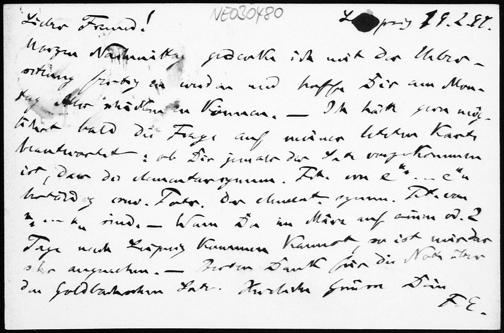 NE030480
Lieber Freund! Leipzig 19.2.87.
Morgen Nachmittag gedenke ich mit der Ueber-
setzung fertig zu werden und hoffe Dir am Mon-
tag Alles schicken zu können. — Ich hätte gern mög-
lichst bald die Frage auf meiner letzten Karte
beantwortet: ob Dir jemals der Satz vorgekommen
ist, dass die elementarsymm. Fkt. von
der elementarsymm. Fkt. von
sind. — Wenn Du im März auf einen od. 2
Tage nach Leipzig kommen kannst, so ist mir das
sehr angenehm. — Besten Dank für die Notiz über
den Goldbachschen Satz. Herzliche Grüsse Dein
F. E.